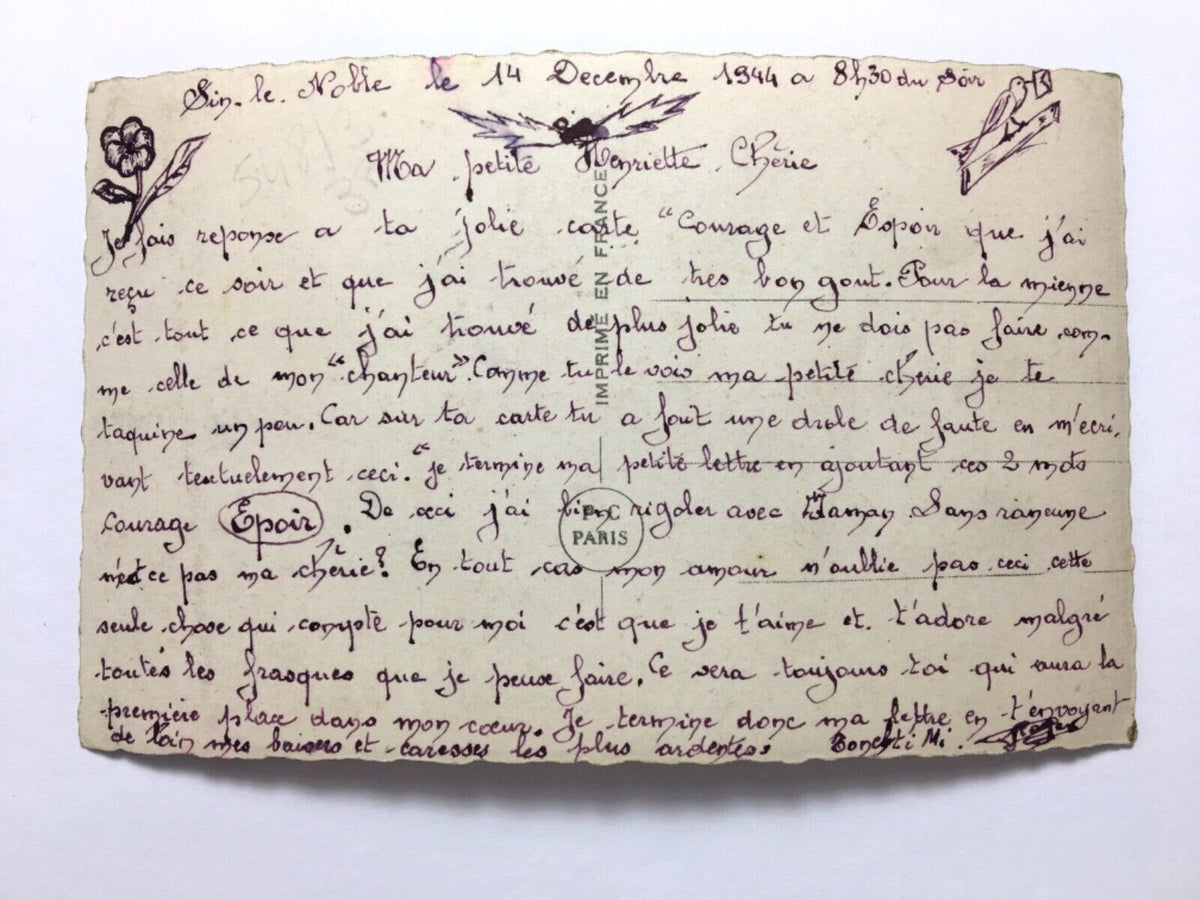 Sin. le. Noble le 14 Decembre 1944 a 8h30 du Soir
Ma petite Henriette Chérie
Je fais reponse a ta jolie carte "Courage et Espoir que j'ai
reçu ce soir et que j'ai trouvé de tres bon gout. Pour la mienne
c'est tout ce que j'ai trouvé de plus jolie tu ne dois pas faire com-
me celle de mon "chanteur". Comme tu le vois ma petite chérie je te
taquine un peu. Car sur ta carte tu a fait une drole de faute en m'ecri-
vant textuelement ceci. "je termine ma petite lettre en ajoutant ces 2 mots
Courage Epoir. De ceci j'ai bien rigoler avec Maman Sans rancune
n'est ce pas ma chérie? En tout cas mon amour n'oublie pas ceci cette
seule chose qui compte pour moi c'est que je t'aime et. t'adore malgré
toutes les frasques que je peux faire. Ce sera toujours toi qui aura la
première place dans mon cœur. Je termine donc ma lettre en t'envoyant
de loin mes baisers et caresses les plus ardentes. Mi.
IMPRIMÉ EN FRANCE
P-C
PARIS